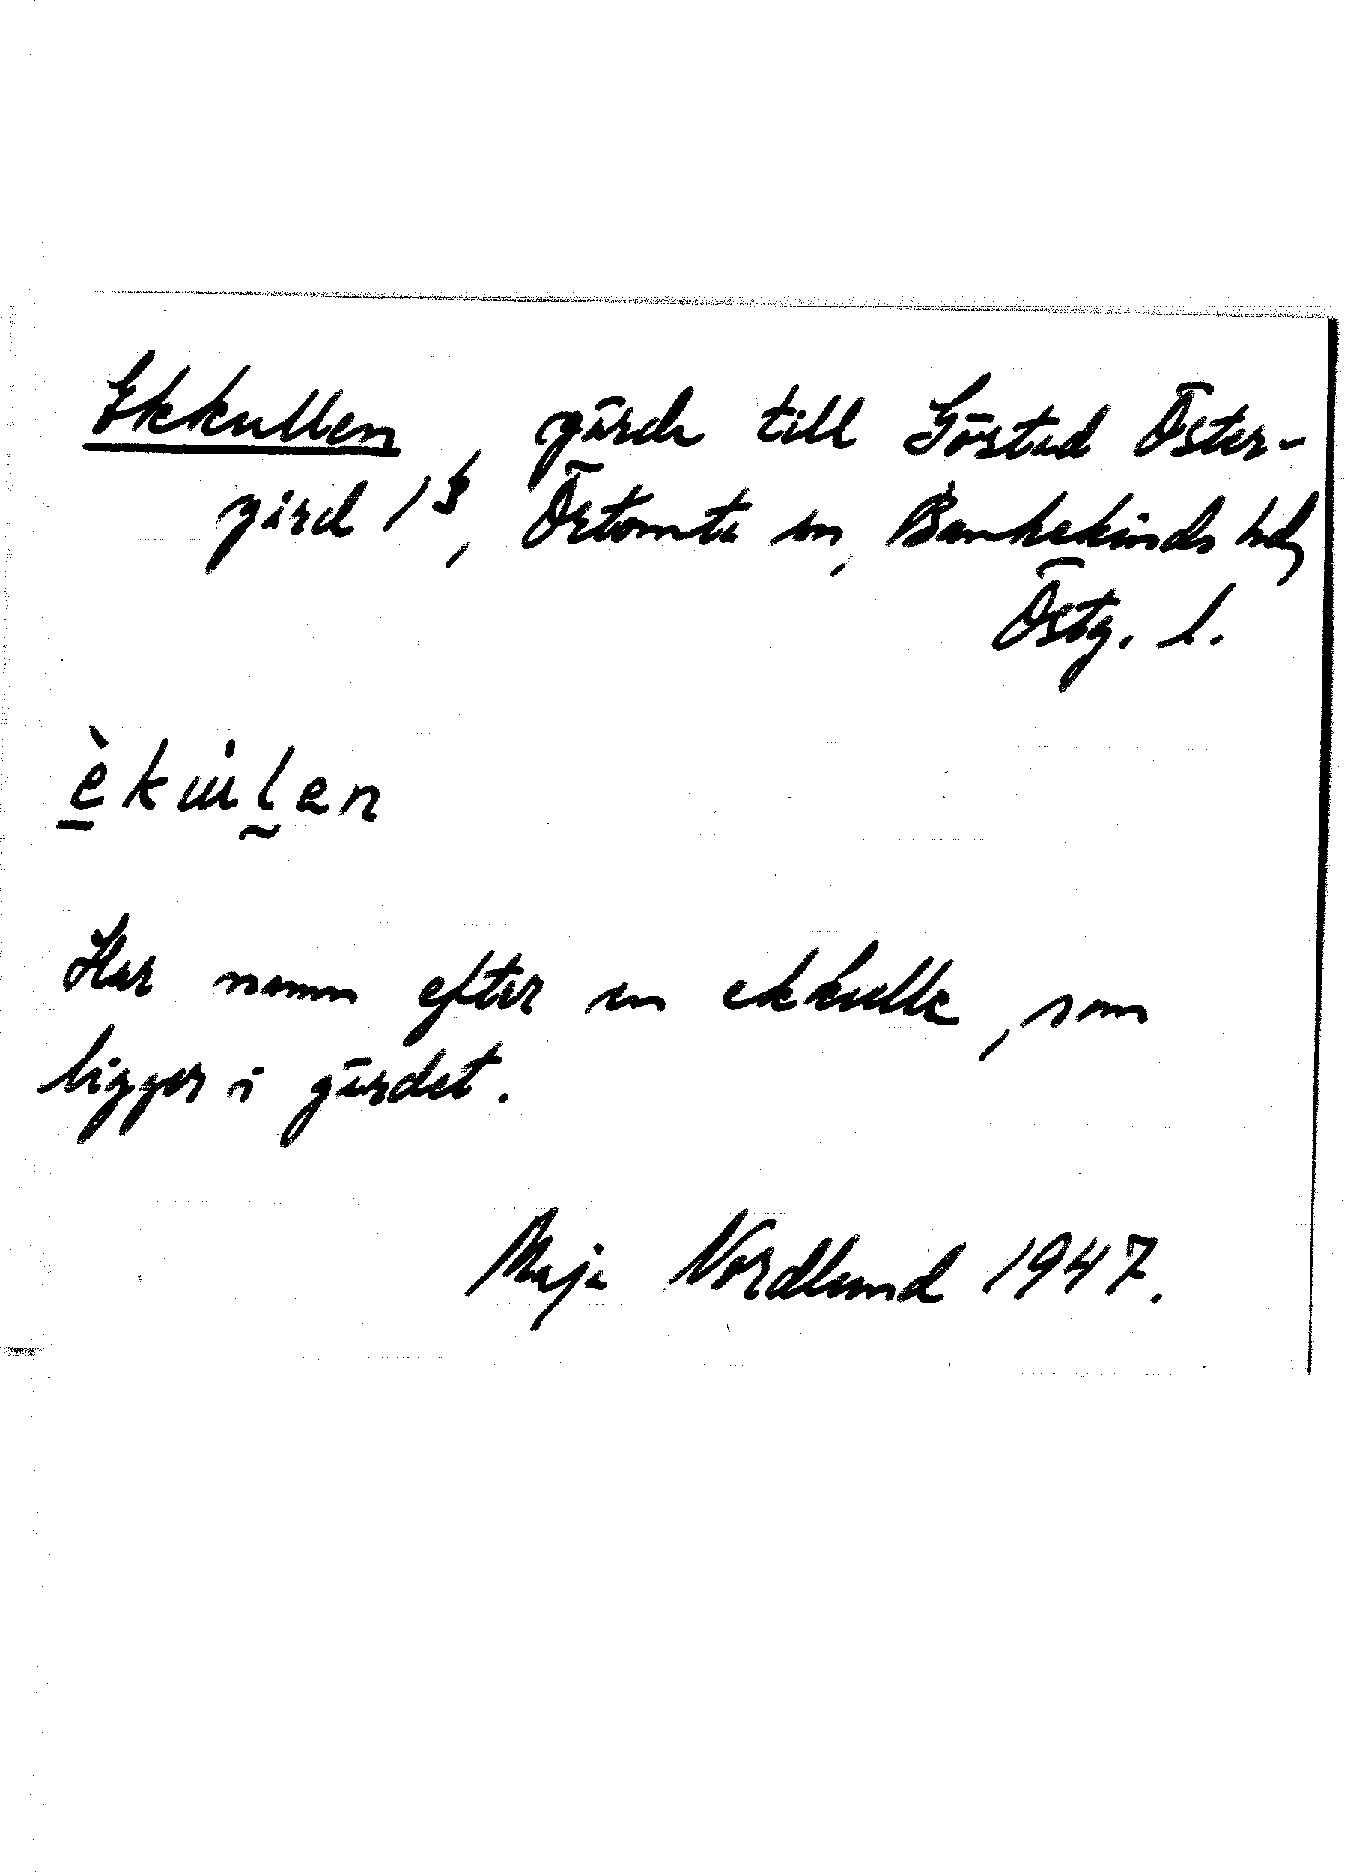 Ekkullen, gärde till Göstad Öster-
gård 1³, Örtomta sn, Bankekinds hd,
Östg. l.
èku̇len
Har namn efter en ekkulle, som
ligger i gärdet.
Maja Nordlund 1947.